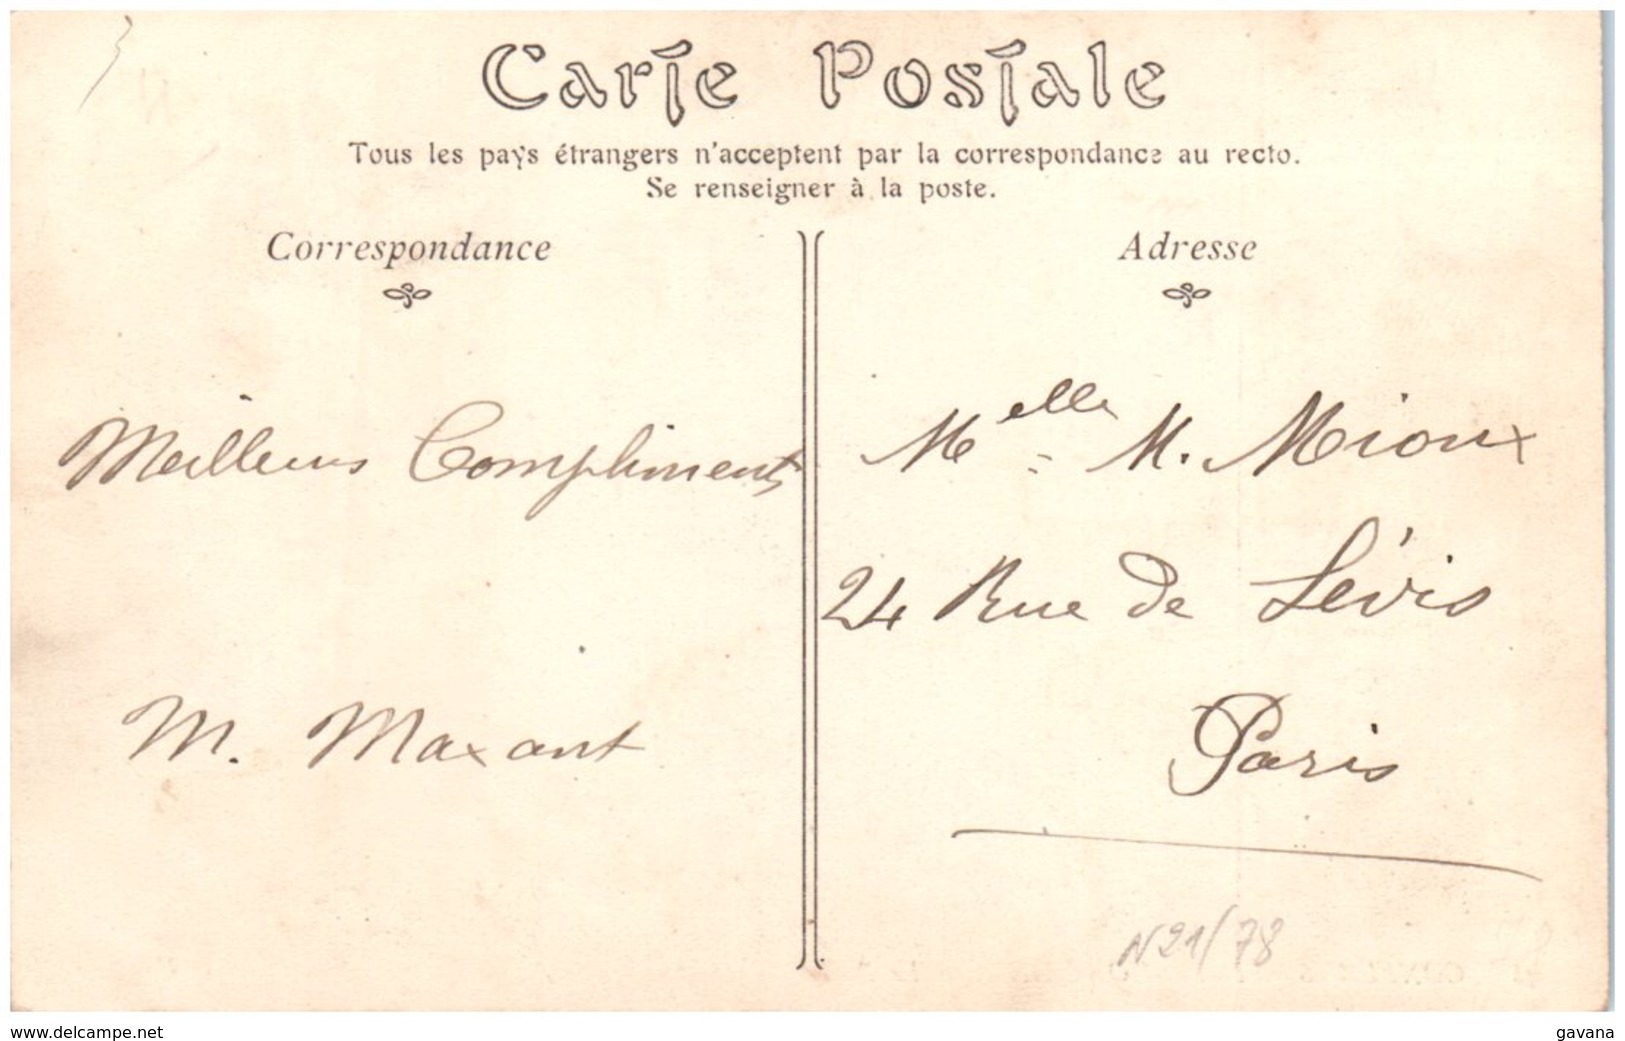 Carte Postale
Tous les pays étrangers n'acceptent par la correspondance au recto.
Se renseigner à la poste.
Correspondance
Adresse
Meilleurs Compliments
M. Maxant
Melle M. Mioux
24 Rue de Lévis
Paris
N21/78
www.delcampe.net
gavana